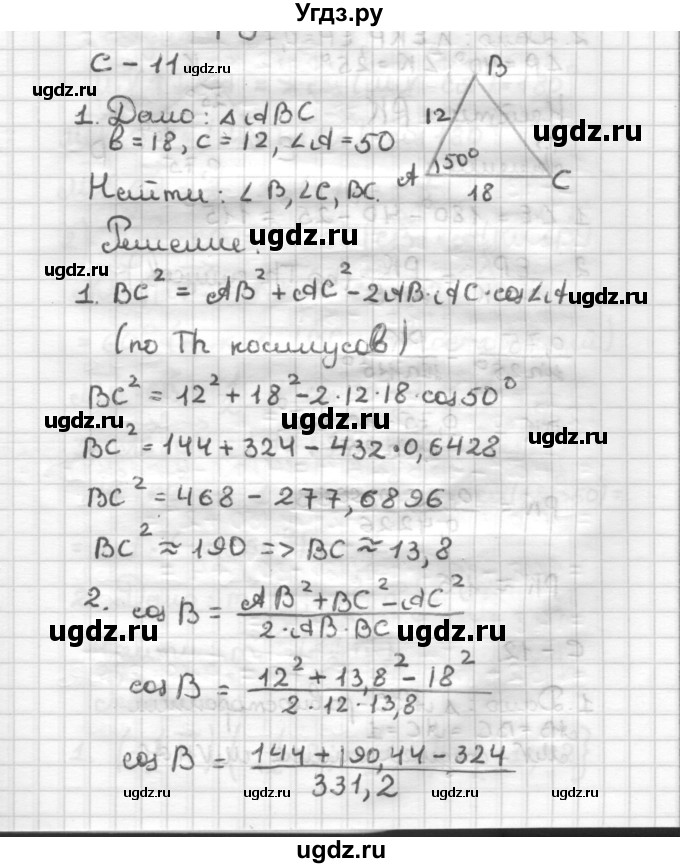 Угдз.ру
С – 11
ugdz.ru
1. Дано: ΔABC
ugdz.ru
в = 18, с = 12, ∠A = 50
Найти: ∠B, ∠C, BC.
B
12
ugdz.ru
A 50° C
18
ugdz.ru
Решение:
ugdz.ru
ugdz.ru
1. BC² = AB² + AC² – 2AB·AC·cos∠A
ugdz.ru
(по Th косинусов)
ugdz.ru
BC² = 12² + 18² – 2·12·18·cos50°
ugdz.ru
ugdz.ru
BC² = 144 + 324 – 432·0,6428
ugdz.ru
BC² = 468 – 277,6896
BC² ≈ 190 => BC ≈ 13,8
2. cos B = AB² + BC² – AC²
2·AB·BC
ugdz.ru
ugdz.ru
cos B = 12² + 13,8² – 18²
2·12·13,8
cos B = 144 + 190,44 – 324
331,2
ugdz.ru
ugdz.ru
ugdz.ru
ugdz.ru
ugdz.ru